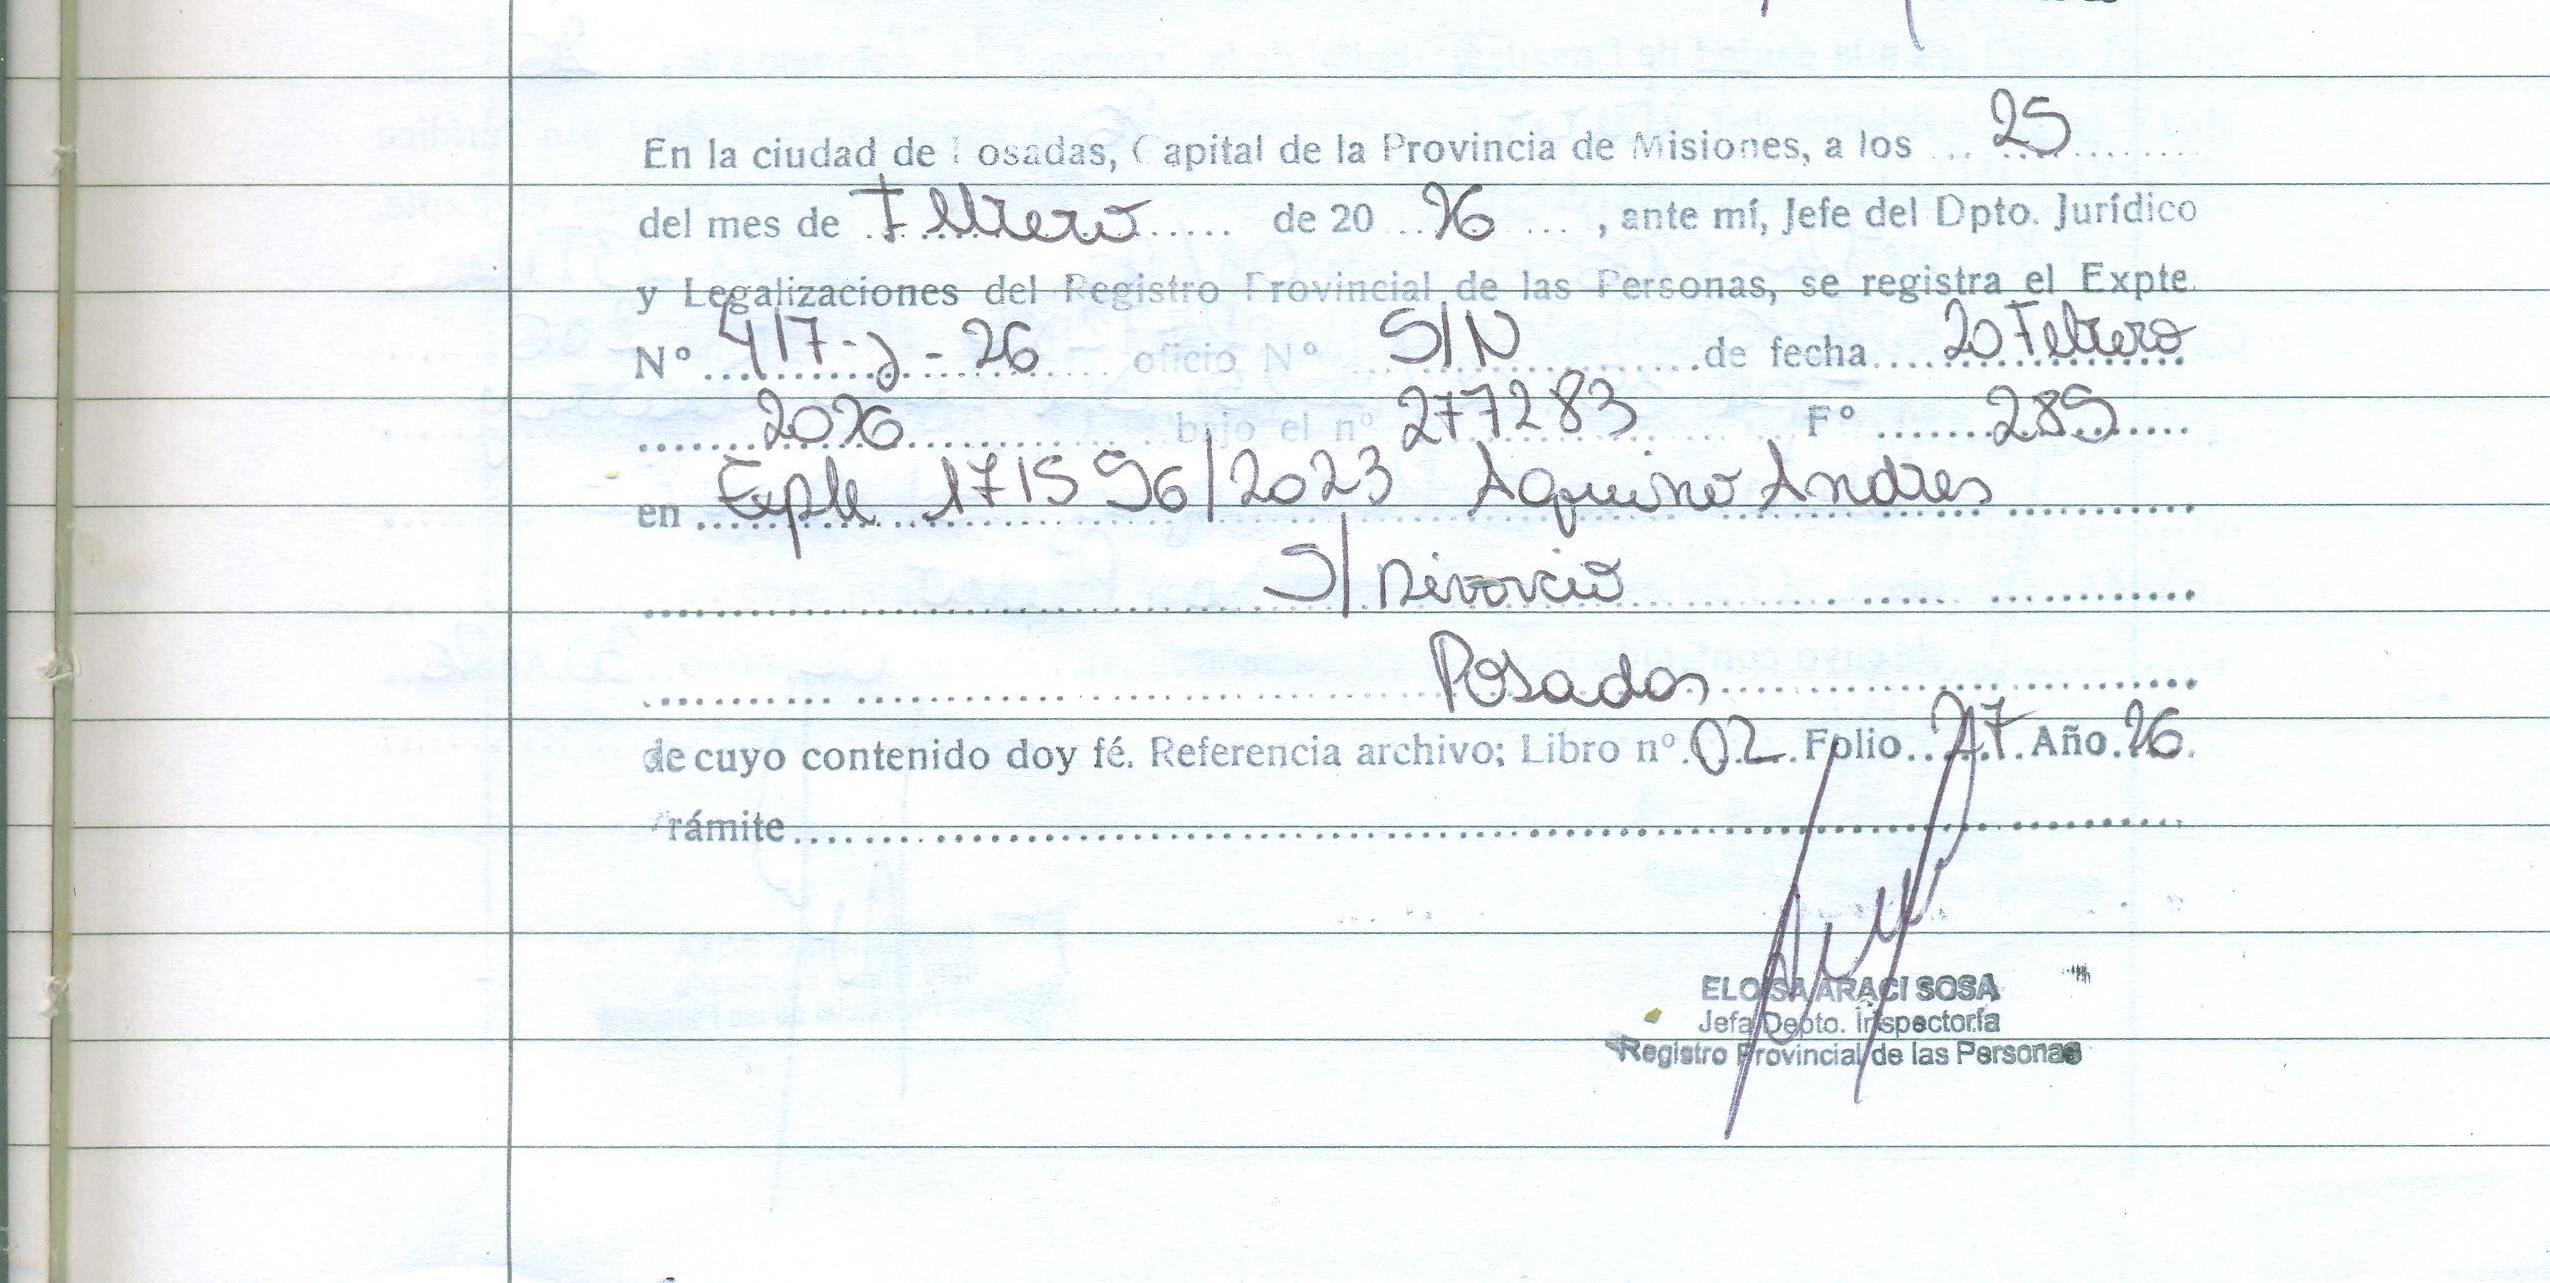 En la ciudad de Posadas, Capital de la Provincia de Misiones, a los ... 25 ..........
del mes de ... Febrero ...... de 20 ... 26 ... , ante mí, Jefe del Dpto. Jurídico
y Legalizaciones del Registro Provincial de las Personas, se registra el Expte.
Nº 417-J-26 oficio Nº S/N de fecha 20 Febrero
2026 bajo el nº 277283 Fº 285
en Expte 171596/2023 Aquino Andres
S/ Divorcio
Posadas
de cuyo contenido doy fé. Referencia archivo; Libro nº 02 Folio 27 Año 26.
Trámite
ELOISA ARACI SOSA
Jefa Depto. Inspectoría
Registro Provincial de las Personas